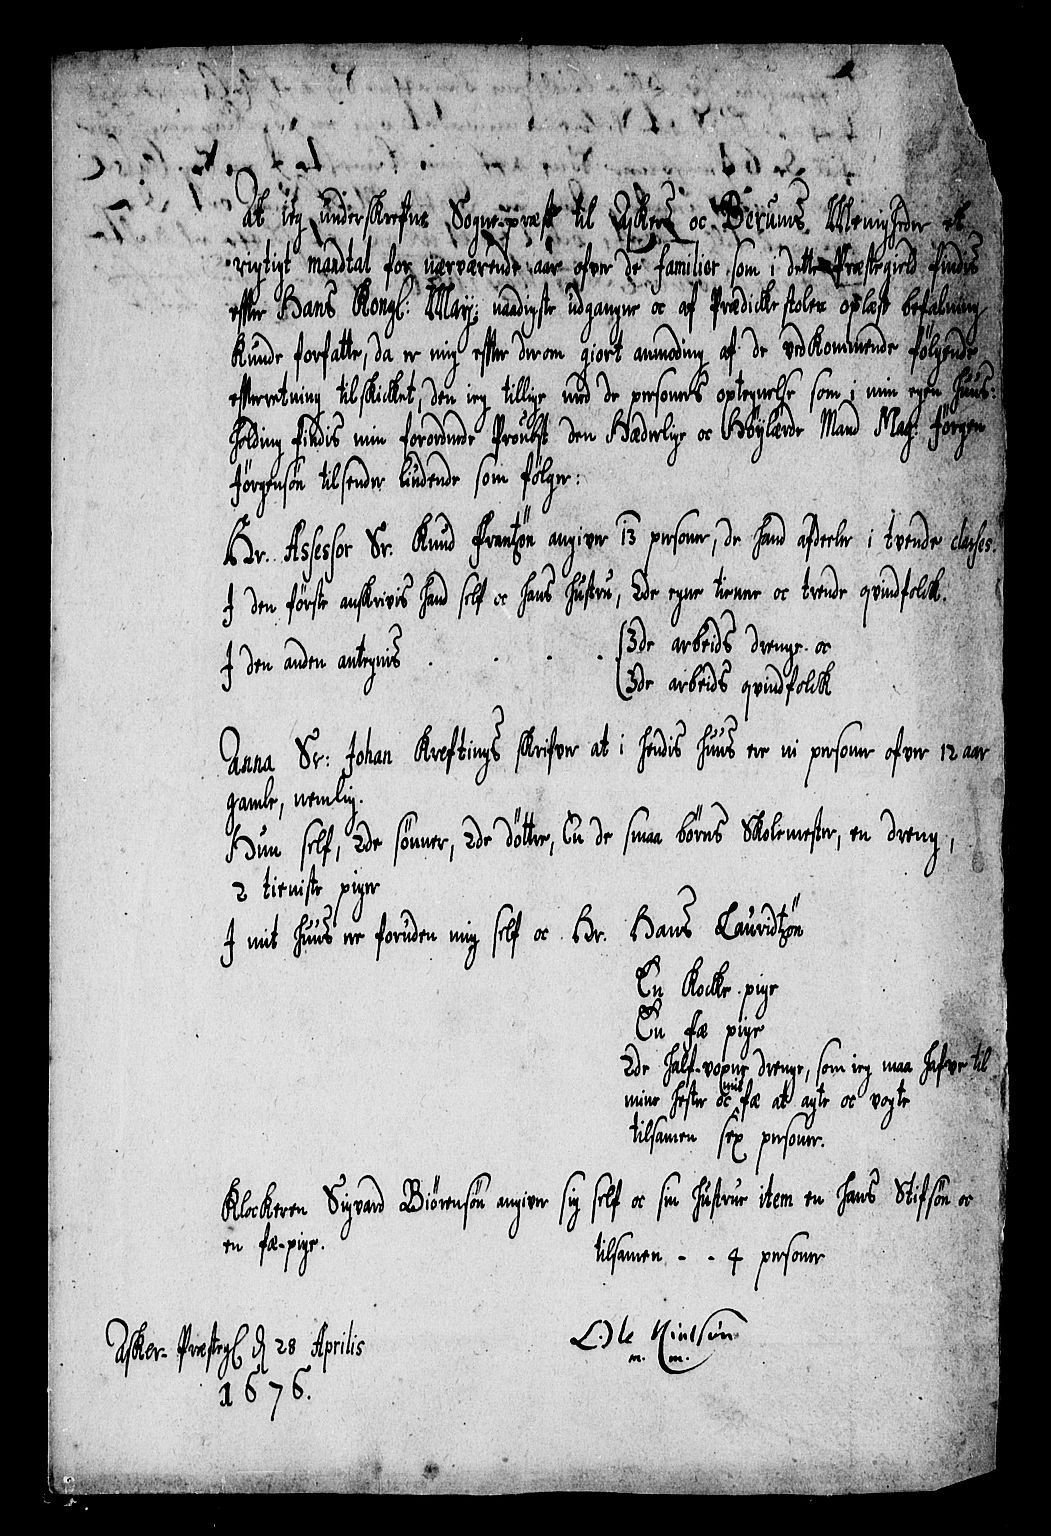 At ieg underskrefne Sogne-præst til Askers oc Berums Menigheder et
rigtigt mandtal for nærværende aar ofver de familier som i dette Præstegield findis
effter Hans Kongl: Maij: naadigste udgangne oc af Prædicke stolen oplæst befalning
kunde forfatte, da er mig effter derom giort anmoding af de vedkommende følgende
effterretning tilskicket, den ieg tillige med de personers optegnelse som i min egen huus:
holding findis min forordnede Proubst den Hæderlige oc Høylærde Mand Mag: Jørgen
Jørgensøn tilsender liudende som følger:
Hr. Assessor Sr. Knud Frantzön angiver 13 personer, de hand afdeeler i tvende classes.
J den første anskrivis hand self oc hans hustru, 2de egne tienere oc trende qvindfolck.
J den anden antegnis . . . . 3de arbeids drenge oc
3de arbeids qvindfolck
Anna Sr: Johan Kreftings skrifver at i hendis huus ere ni personer ofver 12 aar
gamle, nemlig.
Hun self, 2de sönner, 2de döttre, En de smaa börns Skolemester, en dreng,
2 tieniste piger
J mit huus ere foruden mig self oc Hr. Hans Lauridtzön
En Kocke pige
En fæ pige
2de half-vopne drenge, som ieg maa hafve til
mine hester oc mit fæ at agte oc vogte
tilsamen sex personer.
Klockeren Sigvard Biörensön angiver sig self oc sin hustrue item en hans Stifsön oc
en fæ-pige.
tilsamen - - 4 personer
Asker- Præstegl d 28 Aprilis
1676.
Ole Nielsön
m. m.